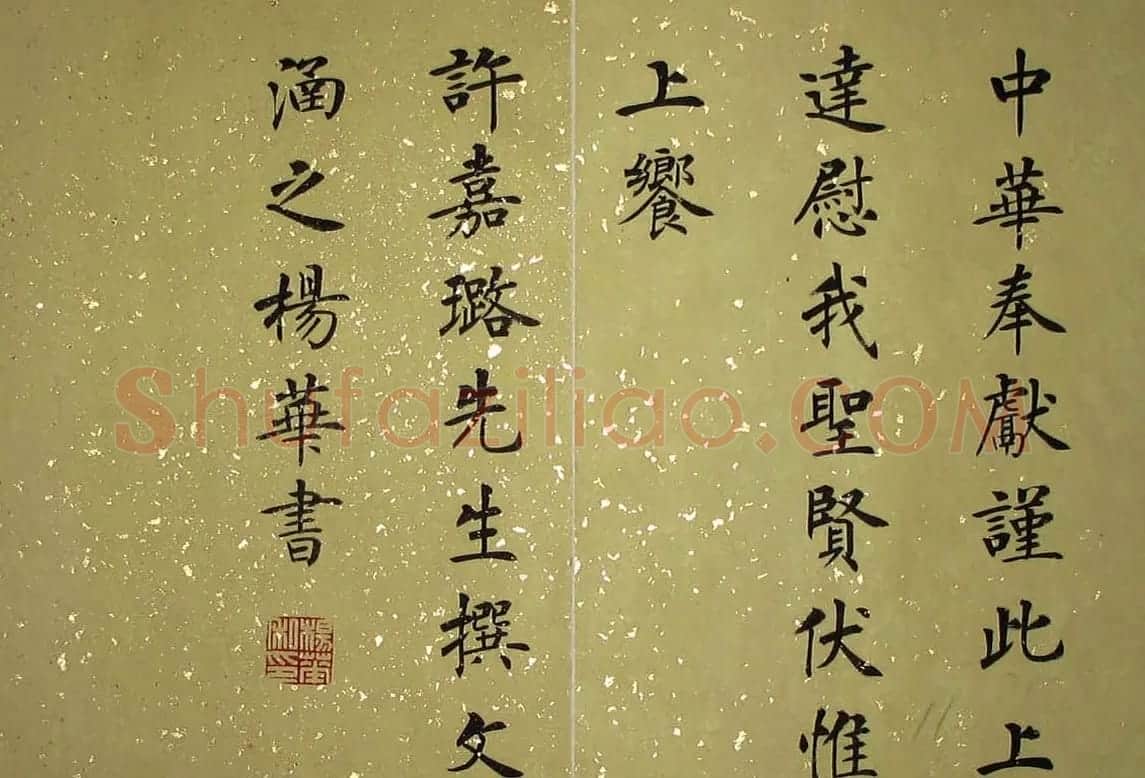 中華奉獻謹此上
達慰我聖賢伏惟
上饗
許嘉璐先生撰文
涵之楊華書
Shufaziliao.COM